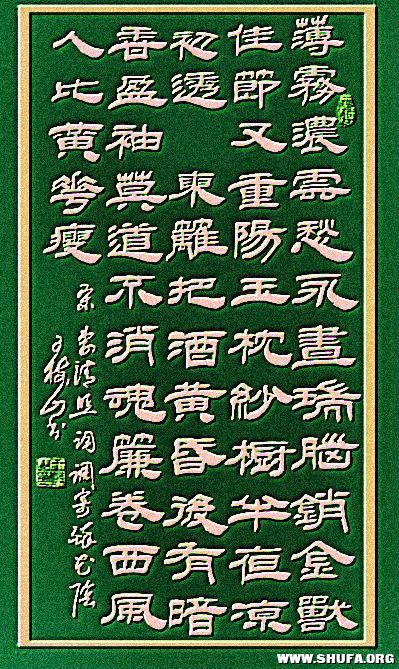 薄霧濃雲愁永晝瑞腦銷金獸
佳節又重陽玉枕紗橱半夜凉
初透 東籬把酒黄昏後有暗
香盈袖 莫道不消魂簾卷西風
人比黄花瘦
宋 李清照詞調寄醉花陰
WWW.SHUFA.ORG